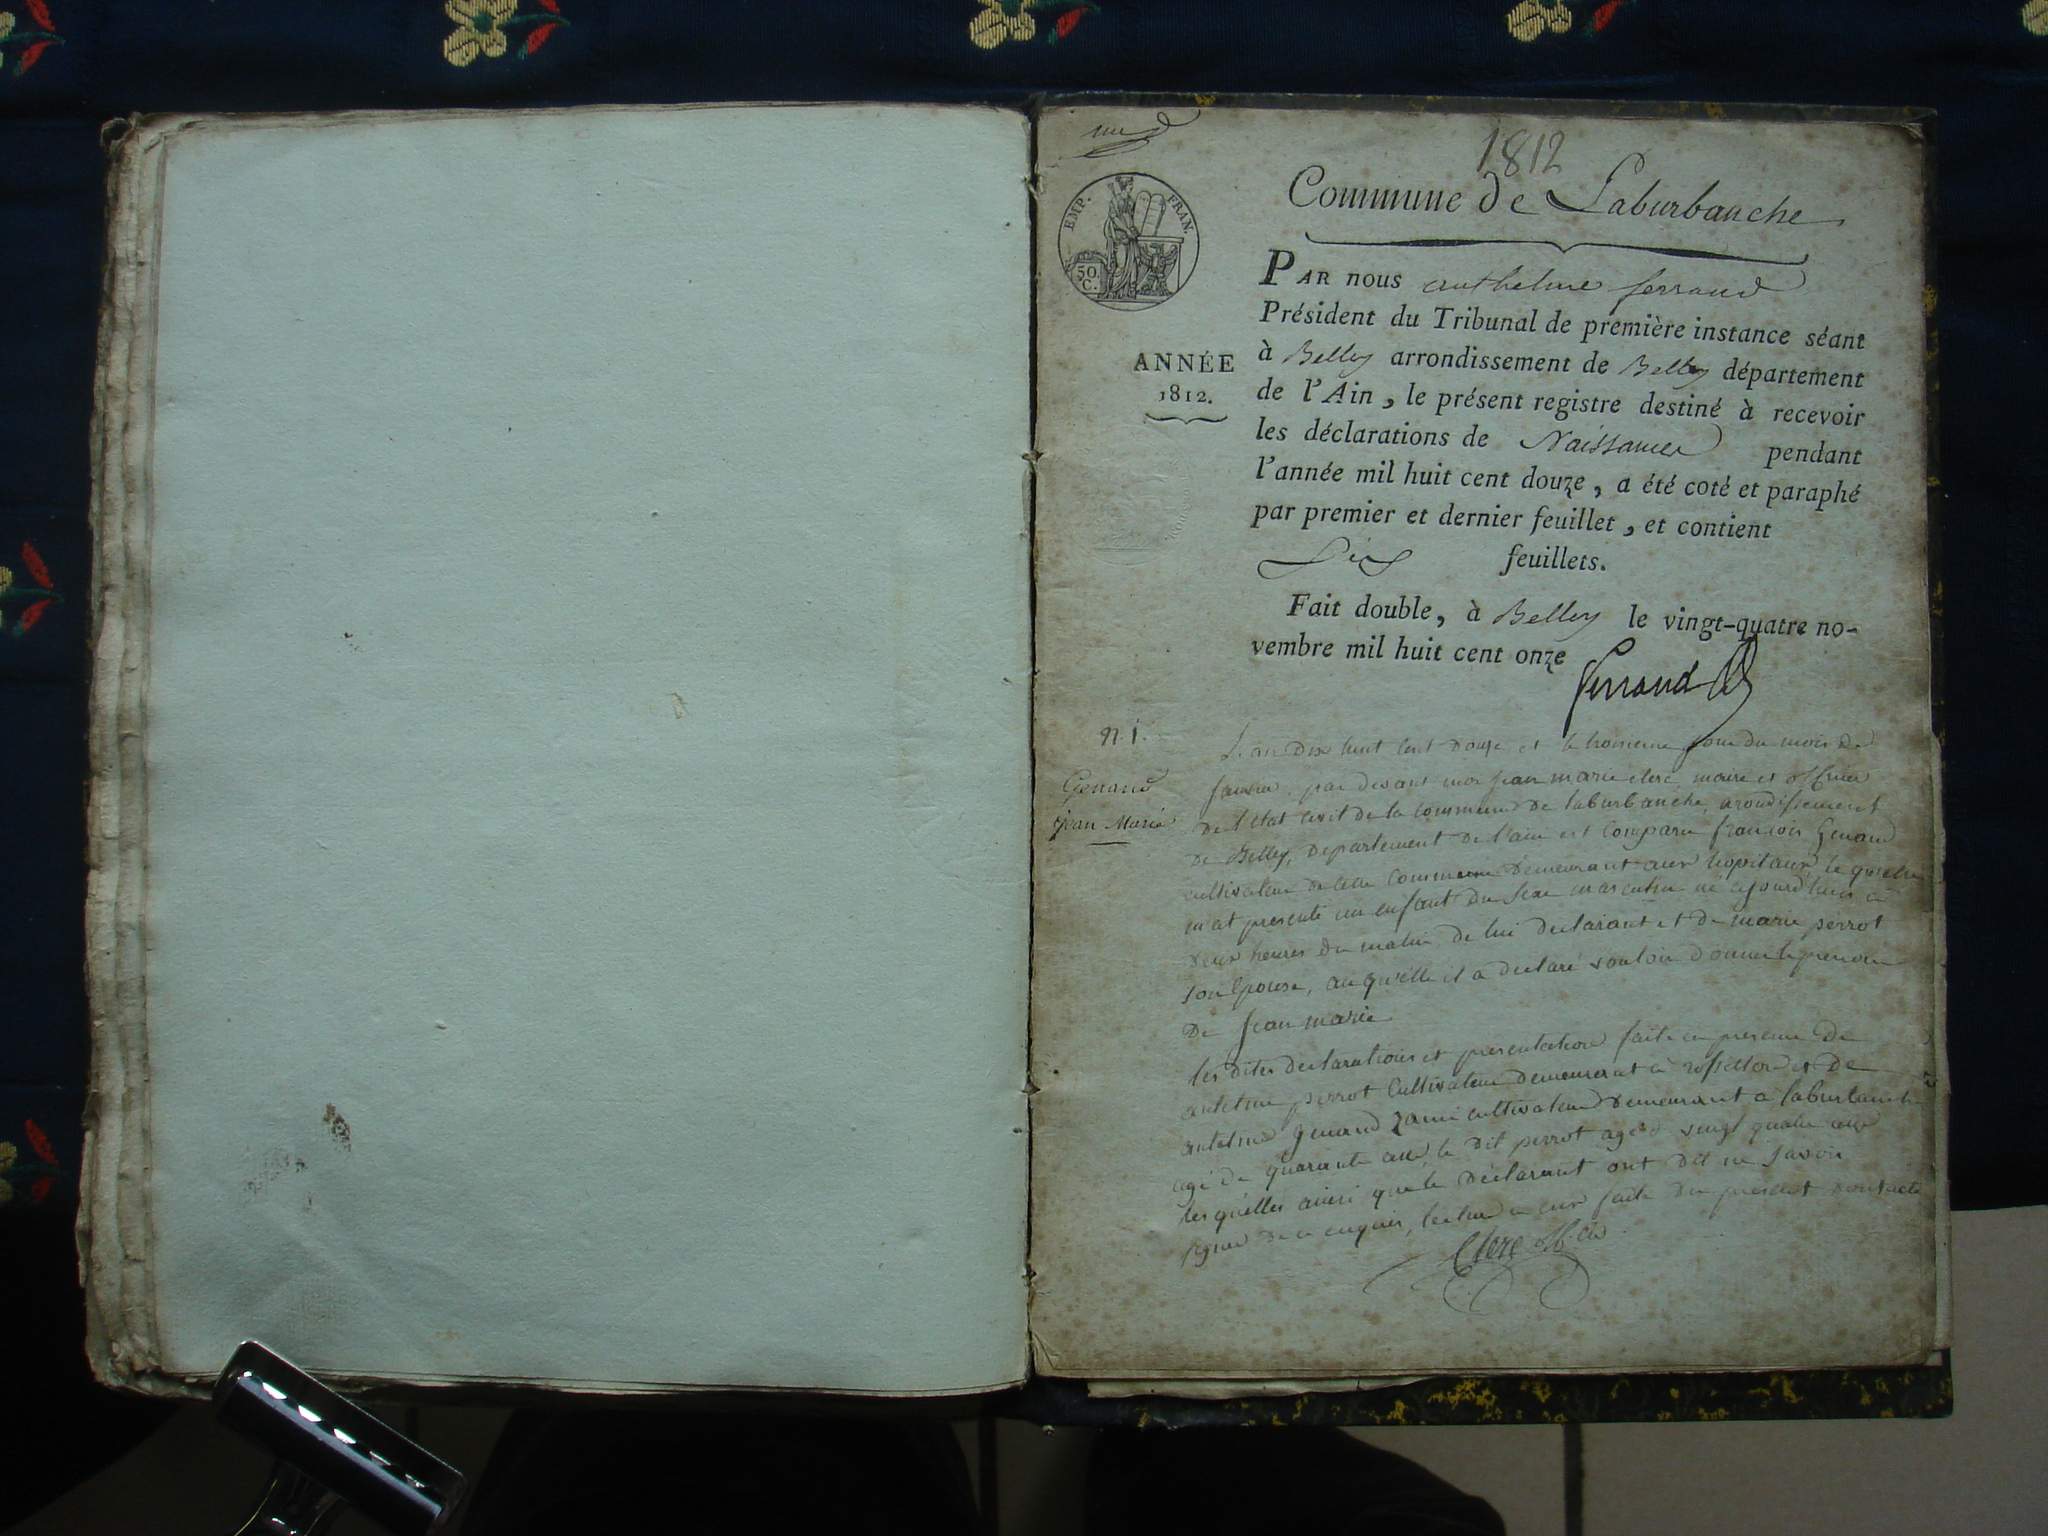 une
1812
Commune de Laburbanche
EMP. FRAN.
50.
C.
PAR nous anthelme ferrand
Président du Tribunal de première instance séant
à Belley arrondissement de Belley département
de l'Ain, le présent registre destiné à recevoir
les déclarations de Naissances pendant
l'année mil huit cent douze, a été coté et paraphé
par premier et dernier feuillet, et contient
Six feuillets.
Fait double, à Belley le vingt-quatre no-
vembre mil huit cent onze
ferrand
ANNÉE
1812.
n. 1.
Genand
jean Marie
L'an dix huit cent douze et le troisieme jour du mois de
janvier, par devant moi jean marie clerc maire et officier
de l'etat civil de la commune de laburbanche, arondissement
de Belley, departement de l'ain est comparu francois Genand
cultivateur de cette commune demeurant aux hopitaux, le quelle
m'at presenté un enfant du sexe masculin né ajourd'huis à
deux heures du matin de lui declarant et de marie perrot
son Epouse, au quelle il a declaré vouloir donner le prenom
de jean marie
les dites declarations et presentation faite en presence de
antelme perrot cultivateur demeurant à rossillon et de
antelme Genand cultivateur demeurant à laburbanche
agé de quarante ans, le dit perrot agé de vingt quatre ans
les quelles ainsi que le declarant ont dit ne savoir
signer de ce enquis, lecture a eux faite du present acte
Clerc